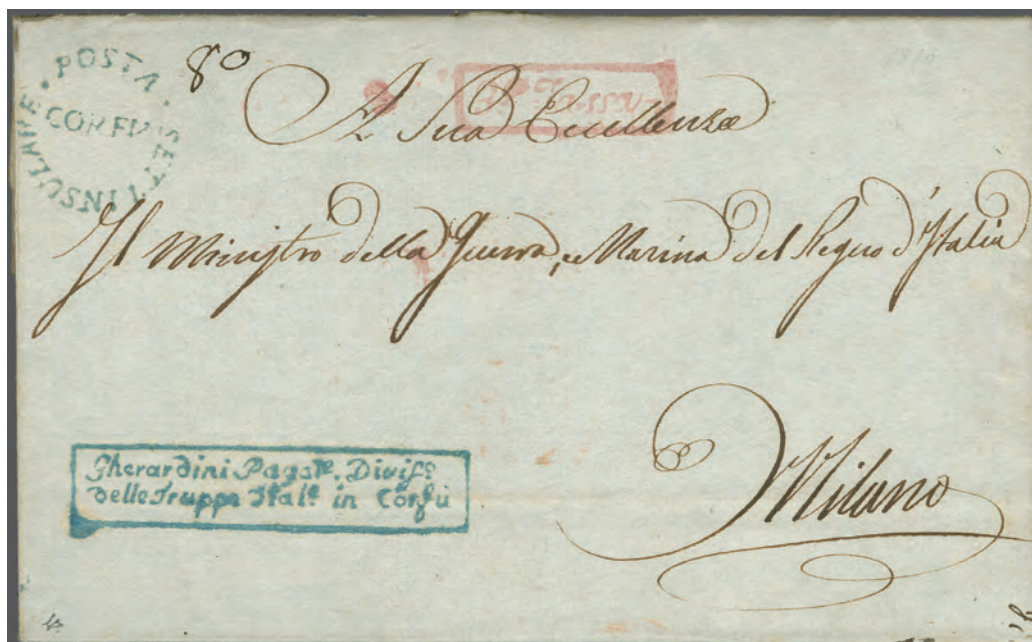 POSTA
CORFU
SETTINSULARE
8º
A Sua Eccellenza
Il Ministro della Guerra, e Marina del Regno d'Italia
Milano
Gherardini Pagatᵉ. Divisº
delle Truppe Italᵉ in Corfù